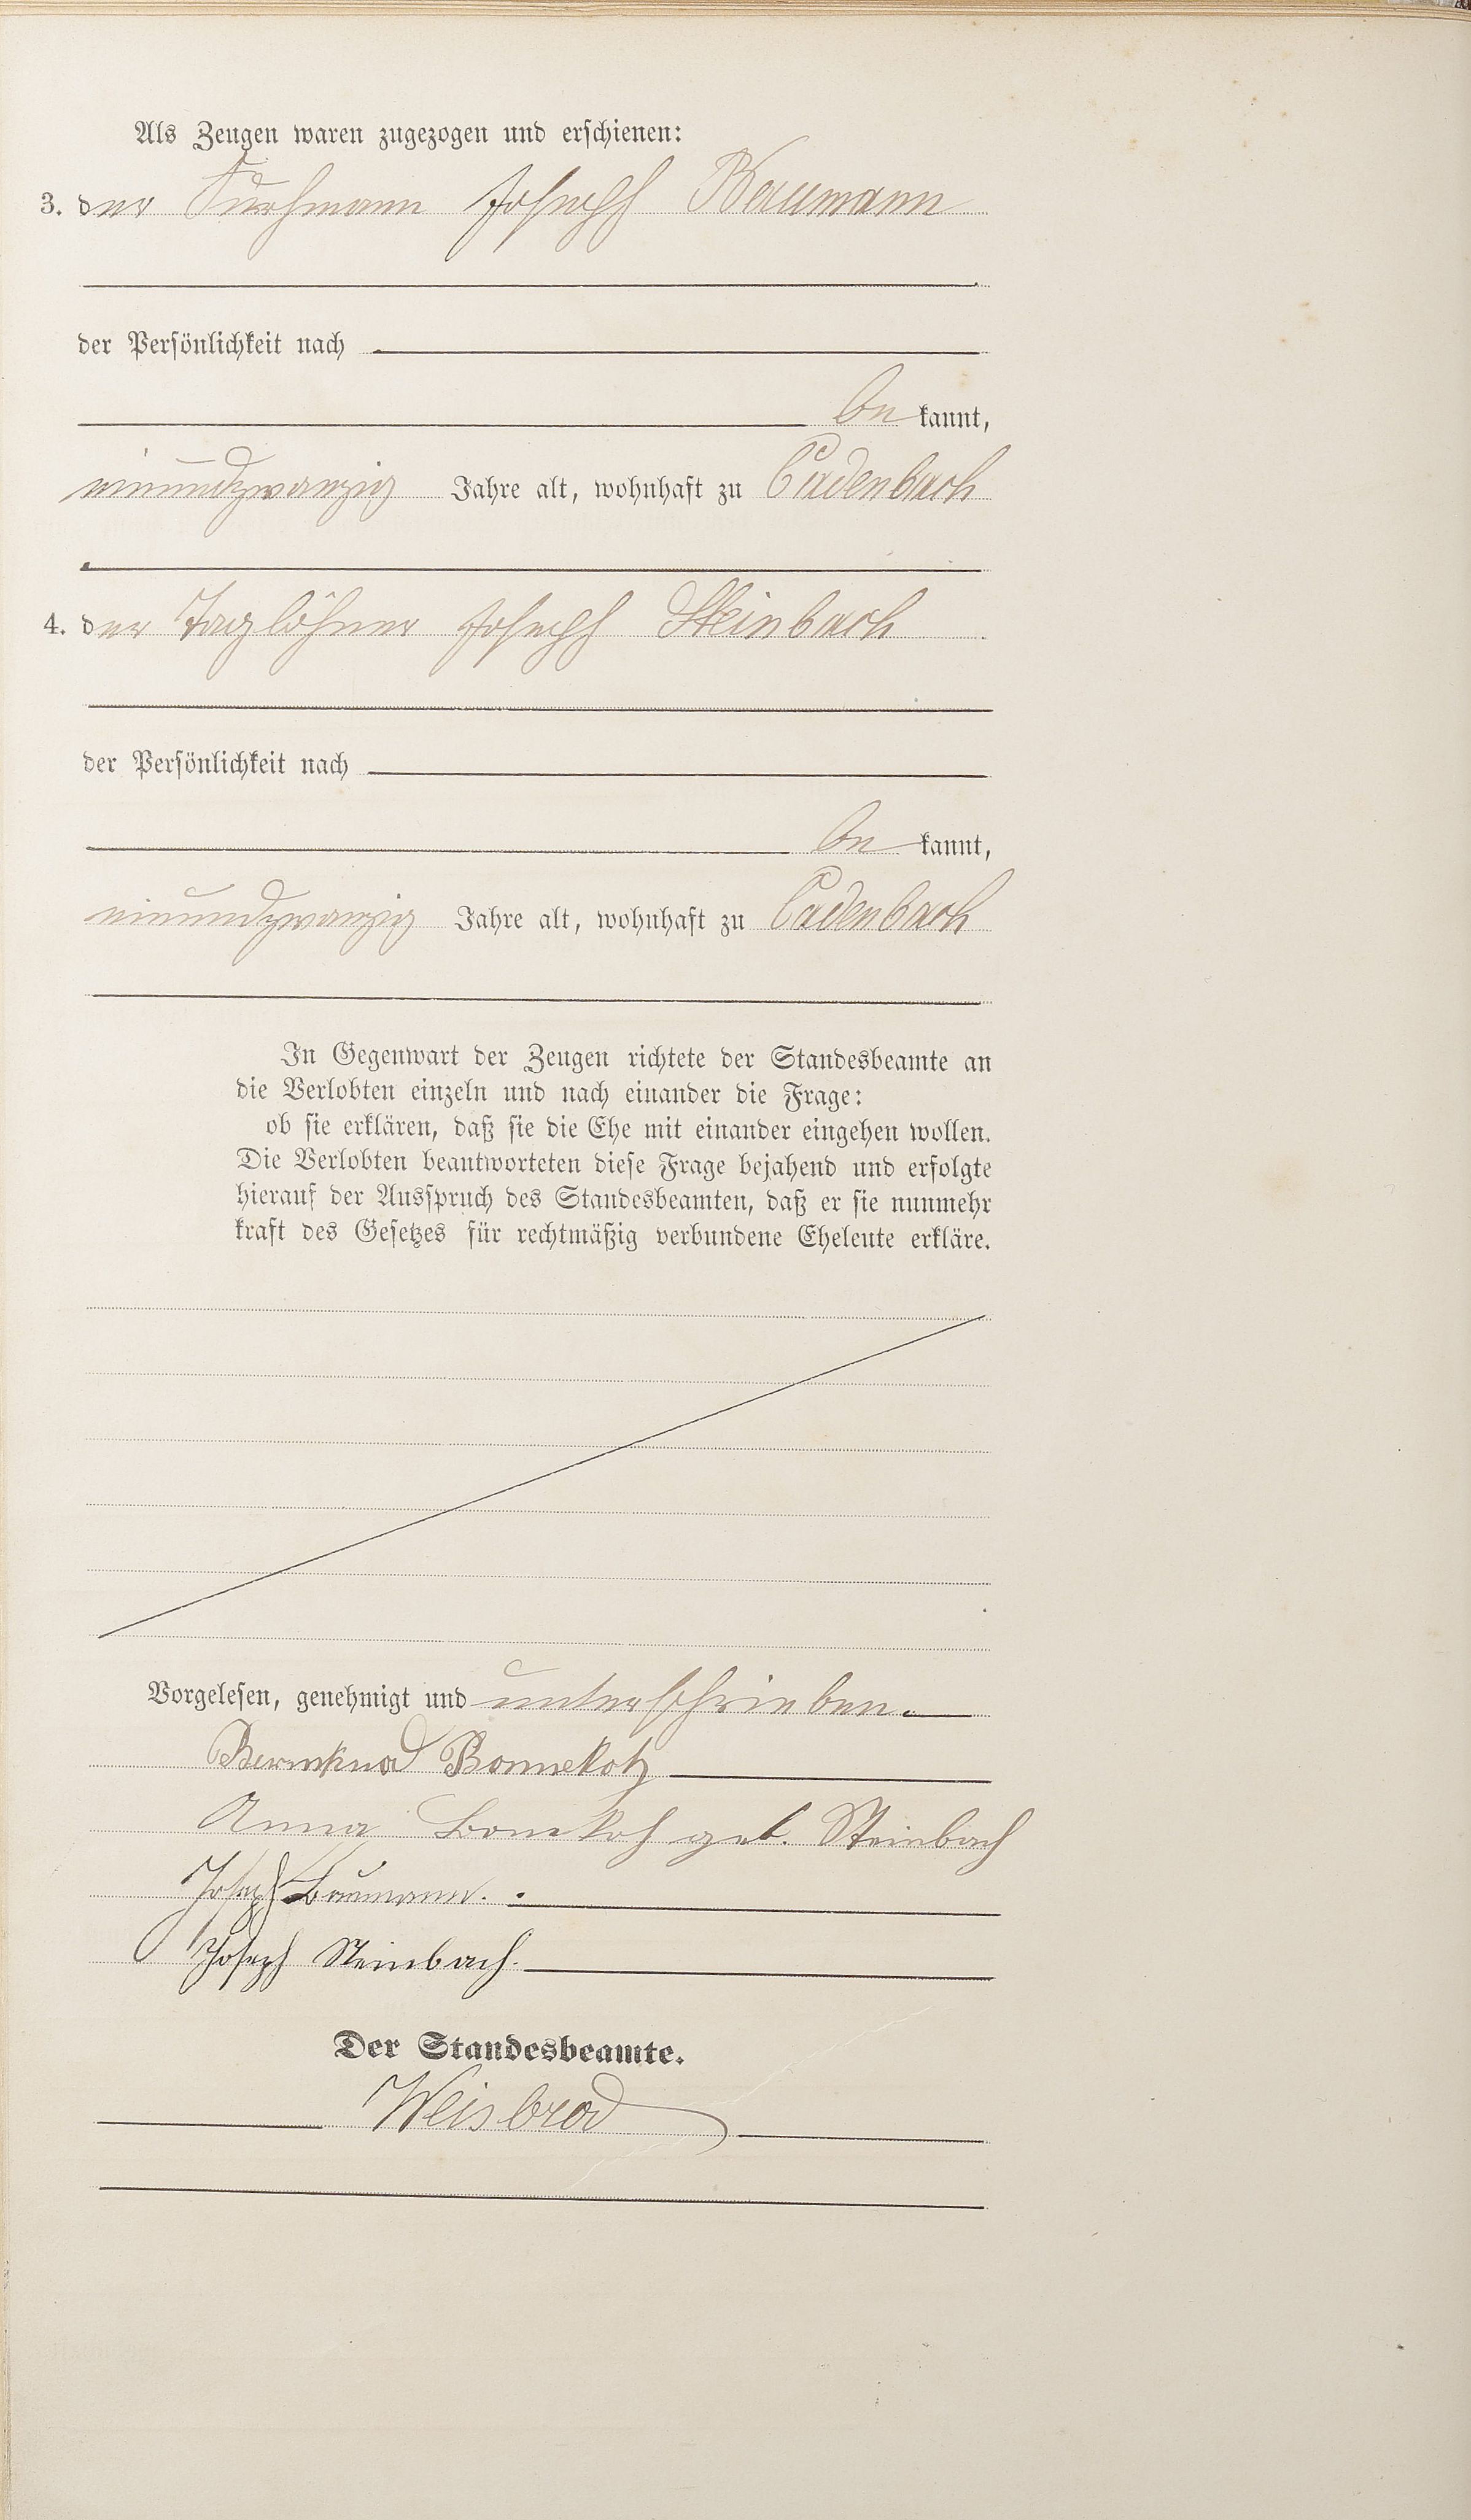 Als Zeugen waren zugezogen und erschienen:
3. der Fuhrmann Joseph Baumann
der Persönlichkeit nach
be kannt,
einundzwanzig Jahre alt, wohnhaft zu Cadenbach
4. der Taglöhner Joseph Steinbach
der Persönlichkeit nach
be kannt,
einundzwanzig Jahre alt, wohnhaft zu Cadenbach
In Gegenwart der Zeugen richtete der Standesbeamte an
die Verlobten einzeln und nach einander die Frage:
ob sie erklären, daß sie die Ehe mit einander eingehen wollen.
Die Verlobten beantworteten diese Frage bejahend und erfolgte
hierauf der Ausspruch des Standesbeamten, daß er sie nunmehr
kraft des Gesetzes für rechtmäßig verbundene Eheleute erkläre.
Vorgelesen, genehmigt und unterschrieben.
Anna geb. Steinbach
Joseph Baumann.
Joseph Steinbach.
Der Standesbeamte.
Weisbrod